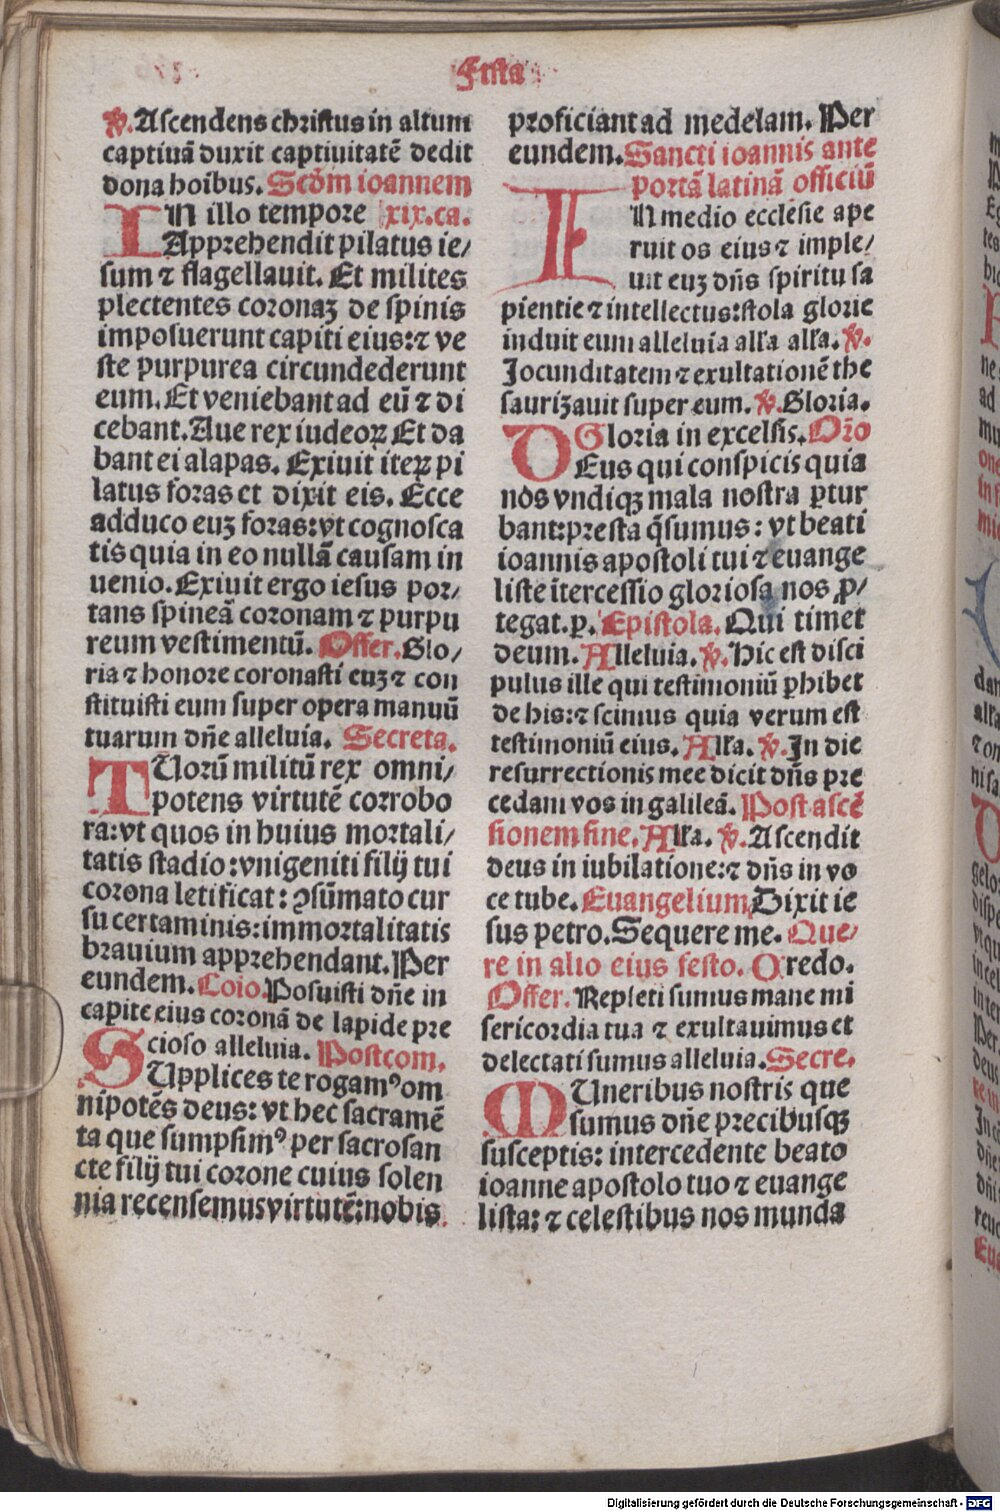 Festa
℣. Ascendens christus in altum
captiuā duxit captiuitatē dedit
dona hoibus. Scdm ioannem
IN illo tempore xix.ca.
Apprehendit pilatus ie/
sum ⁊ flagellauit. Et milites
plectentes coronaꝫ de spinis
imposuerunt capiti eius: ⁊ ve
ste purpurea circundederunt
eum. Et veniebant ad eū ⁊ di
cebant. Aue rex iudeoꝝ Et da
bant ei alapas. Exiuit iteꝝ pi
latus foras et dixit eis. Ecce
adduco euꝫ foras: vt cognosca
tis quia in eo nullā causam in
uenio. Exiuit ergo iesus por/
tans spineā coronam ⁊ purpu
reum vestimentū. Offer. Glo/
ria ⁊ honore coronasti euꝫ ⁊ con
stituisti eum super opera manuū
tuarum dñe alleluia. Secreta.
TUorū militū rex omni/
potens virtutē corrobo
ra: vt quos in huius mortali/
tatis stadio: vnigeniti filij tui
corona letificat: ꝯsūmato cur
su certaminis: immortalitatis
brauium apprehendant. Per
eundem. Coio. Posuisti dñe in
capite eius coronā de lapide pre
cioso alleluia. Postcom.
SUpplices te rogamꝰ om
nipotēs deus: vt hec sacramē
ta que sumpsimꝰ per sacrosan
cte filij tui corone cuius solen
nia recensemus virtutē: nobis
proficiant ad medelam. Per
eundem. Sancti ioannis ante
portā latinā officiū
IN medio ecclesie ape
ruit os eius ⁊ imple/
uit euꝫ dñs spiritu sa
pientie ⁊ intellectus: stola glorie
induit eum alleluia alľa alľa. ℣.
Jocunditatem ⁊ exultationē the
saurizauit super eum. ℣. Gloria.
Gloria in excelsis. Oro
DEus qui conspicis quia
nos vndiqꝫ mala nostra ꝑtur
bant: presta q̄sumus: vt beati
ioannis apostoli tui ⁊ euange
liste ītercessio gloriosa nos ꝓ/
tegat. ꝑ. Epistola. Qui timet
deum. Alleluia. ℣. Hic est disci
pulus ille qui testimoniū ꝑhibet
de his: ⁊ scimus quia verum est
testimoniū eius. Alľa. ℣. In die
resurrectionis mee dicit dñs pre
cedam vos in galileā. Post ascē
sionem sine. Alľa. ℣. Ascendit
deus in iubilatione: ⁊ dñs in vo
ce tube. Euangelium Dixit ie
sus petro. Sequere me. Que/
re in alio eius festo. Credo.
Offer. Repleti sumus mane mi
sericordia tua ⁊ exultauimus et
delectati sumus alleluia. Secre.
MUneribus nostris que
sumus dñe precibusqꝫ
susceptis: intercedente beato
ioanne apostolo tuo ⁊ euange
lista: ⁊ celestibus nos munda
Digitalisierung gefördert durch die Deutsche Forschungsgemeinschaft - DFG